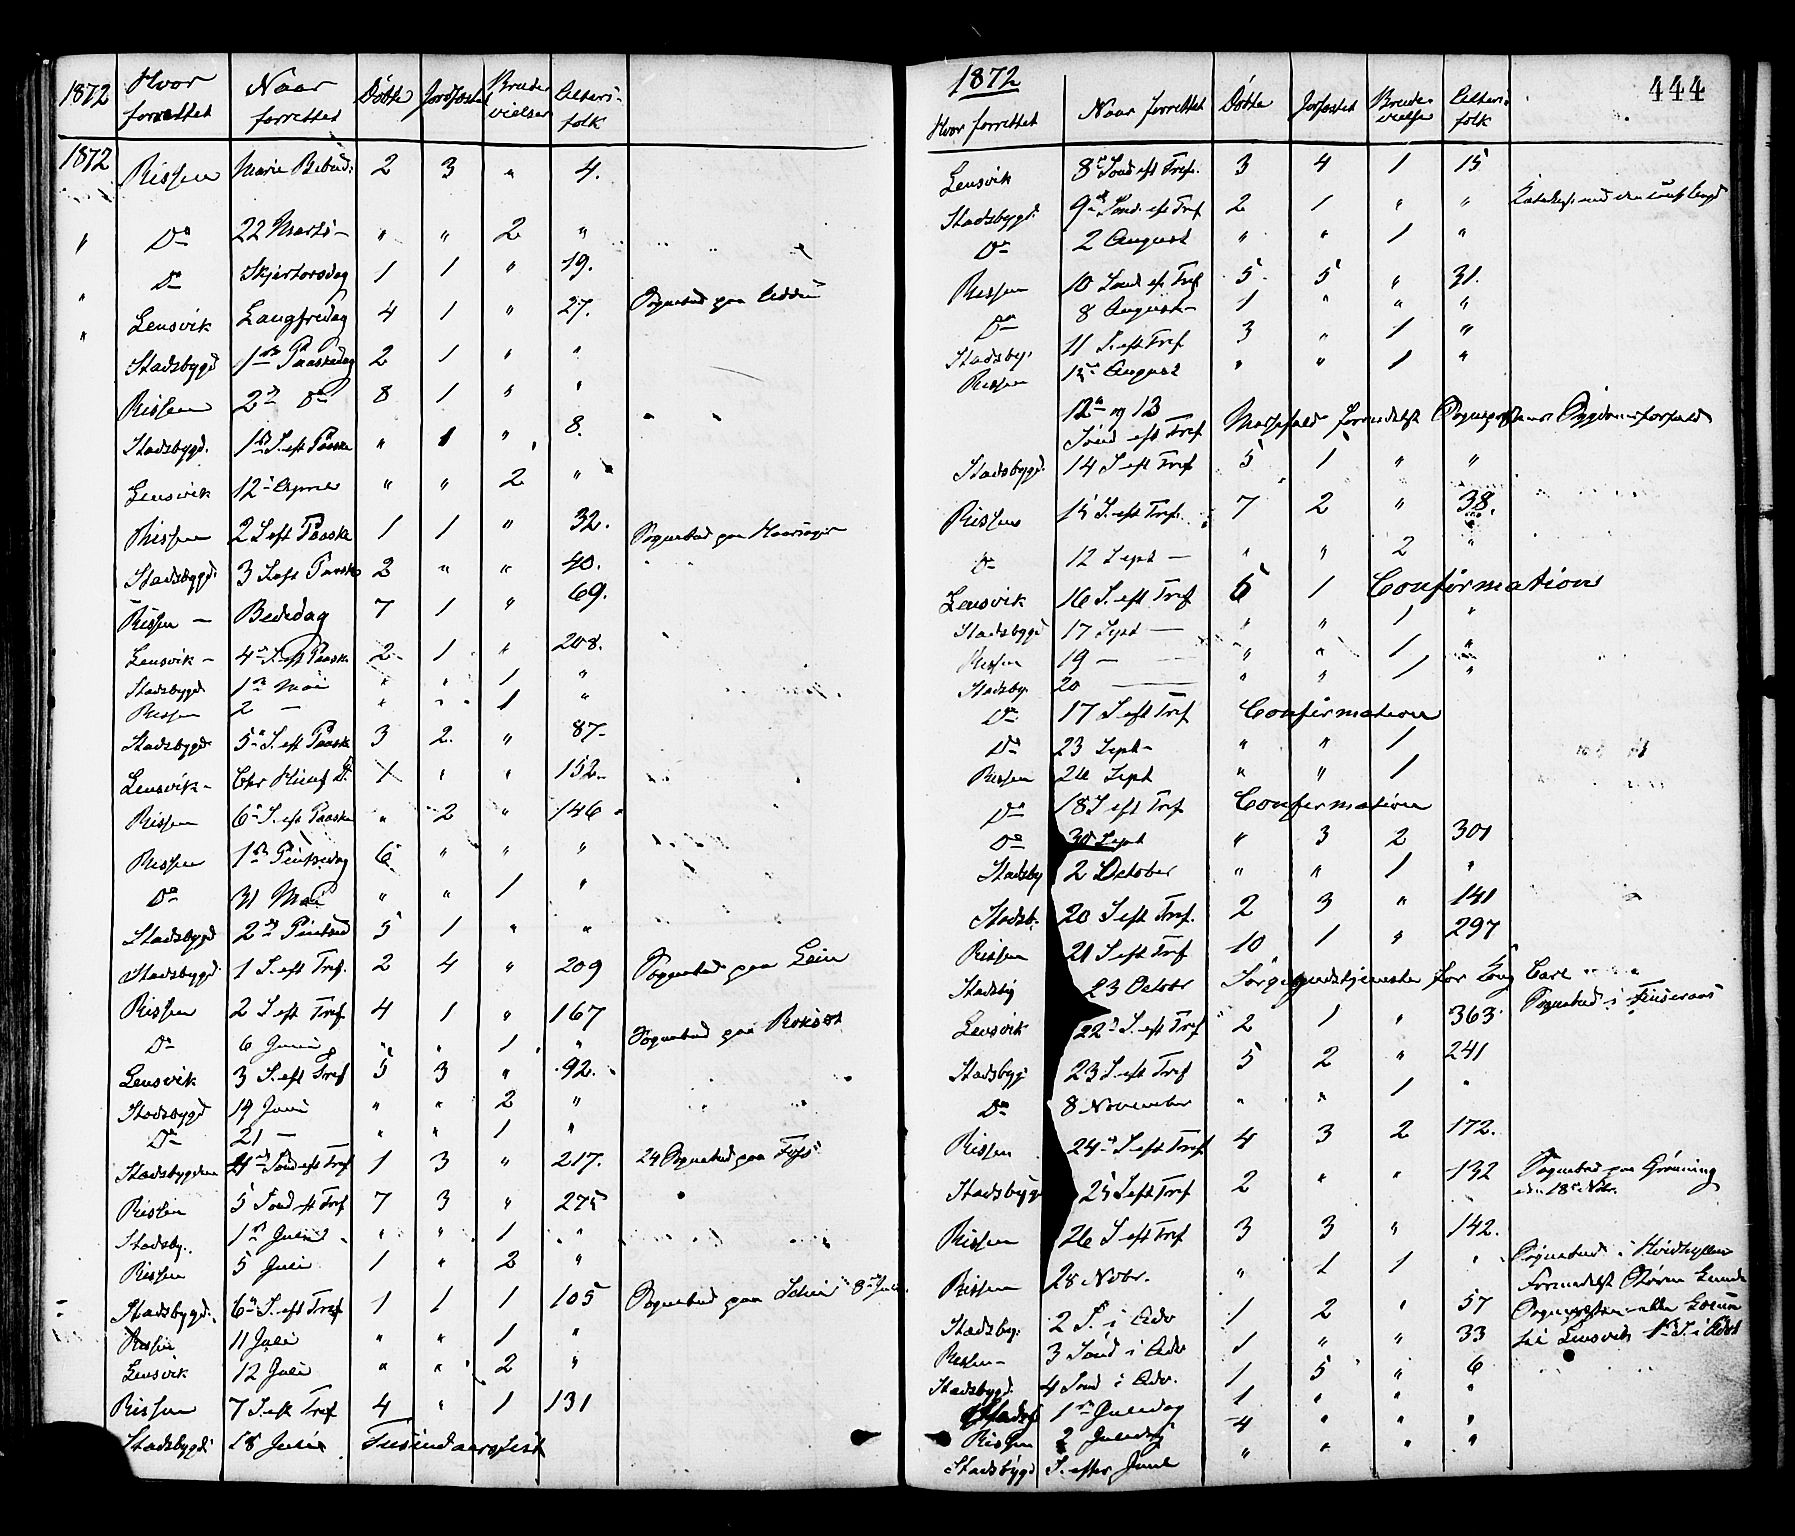 1872 Hvor forrettet Naar forrettet Døbte Jordfæstede Brude vielser Alters-folk
1872 Rissen Mariæ Bebud: 2 3 " 4.
" Do 22 Marts – " " 2 "
" Do Skjertorsdag 1 1 " 19.
" Lensvik Langfredag 4 1 " 27. Sognebud paa
Stadsbygd 1ste Paaskedag 2 1 " "
Rissen 2den Do 8 1 " "
Stadsbygd. 1ste S. eft Paaske " 1 " 8.
Lensvik 12te April " " 2 "
Rissen 2 S. eft Paaske 1 1 " 32. Sognebud paa
Stadsbygd. 3 S. eft Paaske 2 " " 40.
Rissen – Bededag 7 1 " 69.
Lensvik – 4de S. eft Paaske 2 1 " 208.
Stadsbygd 1ste Mai " " 1 "
Rissen 2 – " " 1 "
Stadsbygd 5te S. eft Paaske 3 2 " 87
Lensvik – Chr Himf D. 1 " " 152.
Rissen 6te S. eft Paaske " 2 " 146
Rissen 1ste Pintsedag 6 " " "
Do 31 Mai " " 1 "
Stadsbygd 2den Pintsed 5 1 " "
Stadsbygd. 1 S. eft Tref. 2 4 " 209 Sognebud paa Lein
Rissen 2 S. eft Tref 4 1 " 167
Do 6 Juni " " 1 " Sognebud paa
Lensvik 3 S. eft Tref 5 3 " 92.
Stadsbygd 19 Juni " " 2 "
Do 21 – " " 1 "
Stadsbygden 4de Sønd eft Tref 1 3 " 217. 24 Sognebud paa
Rissen 5 Sønd eft Tref 7 3 " 275
Stadsby. 1ste Juli " " 1 "
Rissen 5 Juli 1 " 2 "
Stadsbygd. 6te S. eft Tref 1 1 1 105 Sognebud paa 8de Juli.
Rissen 11 Juli " " 1 "
Lensvik 12 Juli " " 2 "
Rissen 7 S. eft Tref 4 " 1 131
Stadsbygd 18 Juli Tusindaarsfest
1872 444
Hvor forrettet Naar forrettet Døbte Jorfæstet Brude-vielse Alters-folk
Lensvik 8de Sønd eft Tref. 3 4 1 15
Stadsbygd: 9de Sønd. eft Tref 2 1 " "
Do 2 August " " 1 "
Rissen 10 Sønd eft Tref 5 5 " 31.
Do 8 August – 1 " " "
Stadsby. 11 S. eft Tref 3 " 1 "
Rissen 15de August " " 1 "
12te og 13 Sønd eft Tref Messefald formedelst Sognepræstens Sygdomsforfald
Stadsbygd. 14 S eft Tref 5 1 " "
Rissen 15 S. eft Tref. 7 2 " 38.
Do 12 Sept – " " 2 "
Lensvik 16 S. eft Tref 6 1 Confirmation
Stadsbygd 17 Sept – " " 1 "
Rissen 19 – " " 1 "
Stadsby. 20 – " " 1 "
Do 17 S eft Tref Confirmation
Do 23 Sept – " " 1
Rissen 26 Sept " " 1
Do 18 S eft Tref Confirmation
Do 30 Sept " 3 2 301
Stadsby 2 October " " 1 "
Stadsb. 20 S eft Tref. 2 3 " 141
Rissen 21 S eft Tref 10 1 " 297
Stadsby 23 Octobr Sørgegudstjeneste for Kong Carl
Lensvik 22de S. eft Tref 2 1 " 363. Sognebud i
Stadsbyg. 23 S eft Tref 5 2 " 241
Do 8 November " " 1 "
Rissen 24de S. eft Tref 4 3 2 172.
Stadsbygd 25 S eft Tref 2 " " 132 Sognebud paa Grønning den 18de Nobr.
Rissen 26 S eft Tref 3 3 " 142.
Rissen 28 Nobr. " 1 1 " Sognebud i
Stadsbyg. 2 S. i Adv 1 2 " 57 Formedelst Storm kunde
Rissen – 3 Sønd i Adv 1 " " 33 Sognepræsten ikke komme
Stadsbygd. 4 Sønd i Adv. 1 5 " 6 til Lensvik 1ste S. i Advt
Stadsb 1ste Juledag 1 " " "
Rissen 2 Juledag 4 " " "
Stadsbygd S. efter Juul " " " "